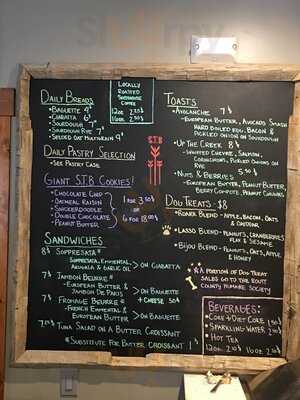 Daily Breads
• Baguette 4$
• Ciabatta 6$
• Sourdough 7$
• Sourdough Rye 7$
• Seeded Oat Multigrain 9$
Daily Pastry Selection
- See Pastry Case
Giant STB Cookies!
• Chocolate Chip
• Oatmeal Raisin
• Snickerdoodle
• Double Chocolate
• Peanut Butter
1 for 3.50
or
6 for 18.00
Sandwiches
8$ Soppresata
- Soppresata, Emmental,
Arugula & Garlic Oil
> on Ciabatta
7$ Jambon Beurre*
- European Butter &
Jambon de Paris
> on Baguette
+ Cheese 50¢
7$ Fromage Beurre*
- French Emmental &
European Butter
> on Baguette
Tuna Salad on a Butter Croissant
* Substitute for Butter Croissant 1$
Locally
Roasted
Coffee
12oz 2.25
16oz 2.50
STB
Toasts
• Avalanche 7$
- European Butter, Avocado Smash
Hard Boiled Egg, Bacon &
Pickled Onion on Sourdough
• Up the Creek 8$
- Whipped Chevre, Salmon,
Cornichons, Pickled Onions on
Rye
• Nuts & Berries 5.50
- European Butter, Peanut Butter,
Berry Compote, Peanut Crumble
Dog Treats - $8
• Roark Blend - Apple, Bacon, Oats
& Cheddar
• Lasso Blend - Peanuts, Cranberries
Flax & Sesame
• Bijou Blend - Peanuts, Oats, Apple
& Honey
A Portion of Dog Treat
Sales Go to Routt
County Humane Society
Beverages:
• Coke + Diet Coke 1.50
• Sparkling Water 2.50
• Hot Tea
12oz 2.25 16oz 2.50